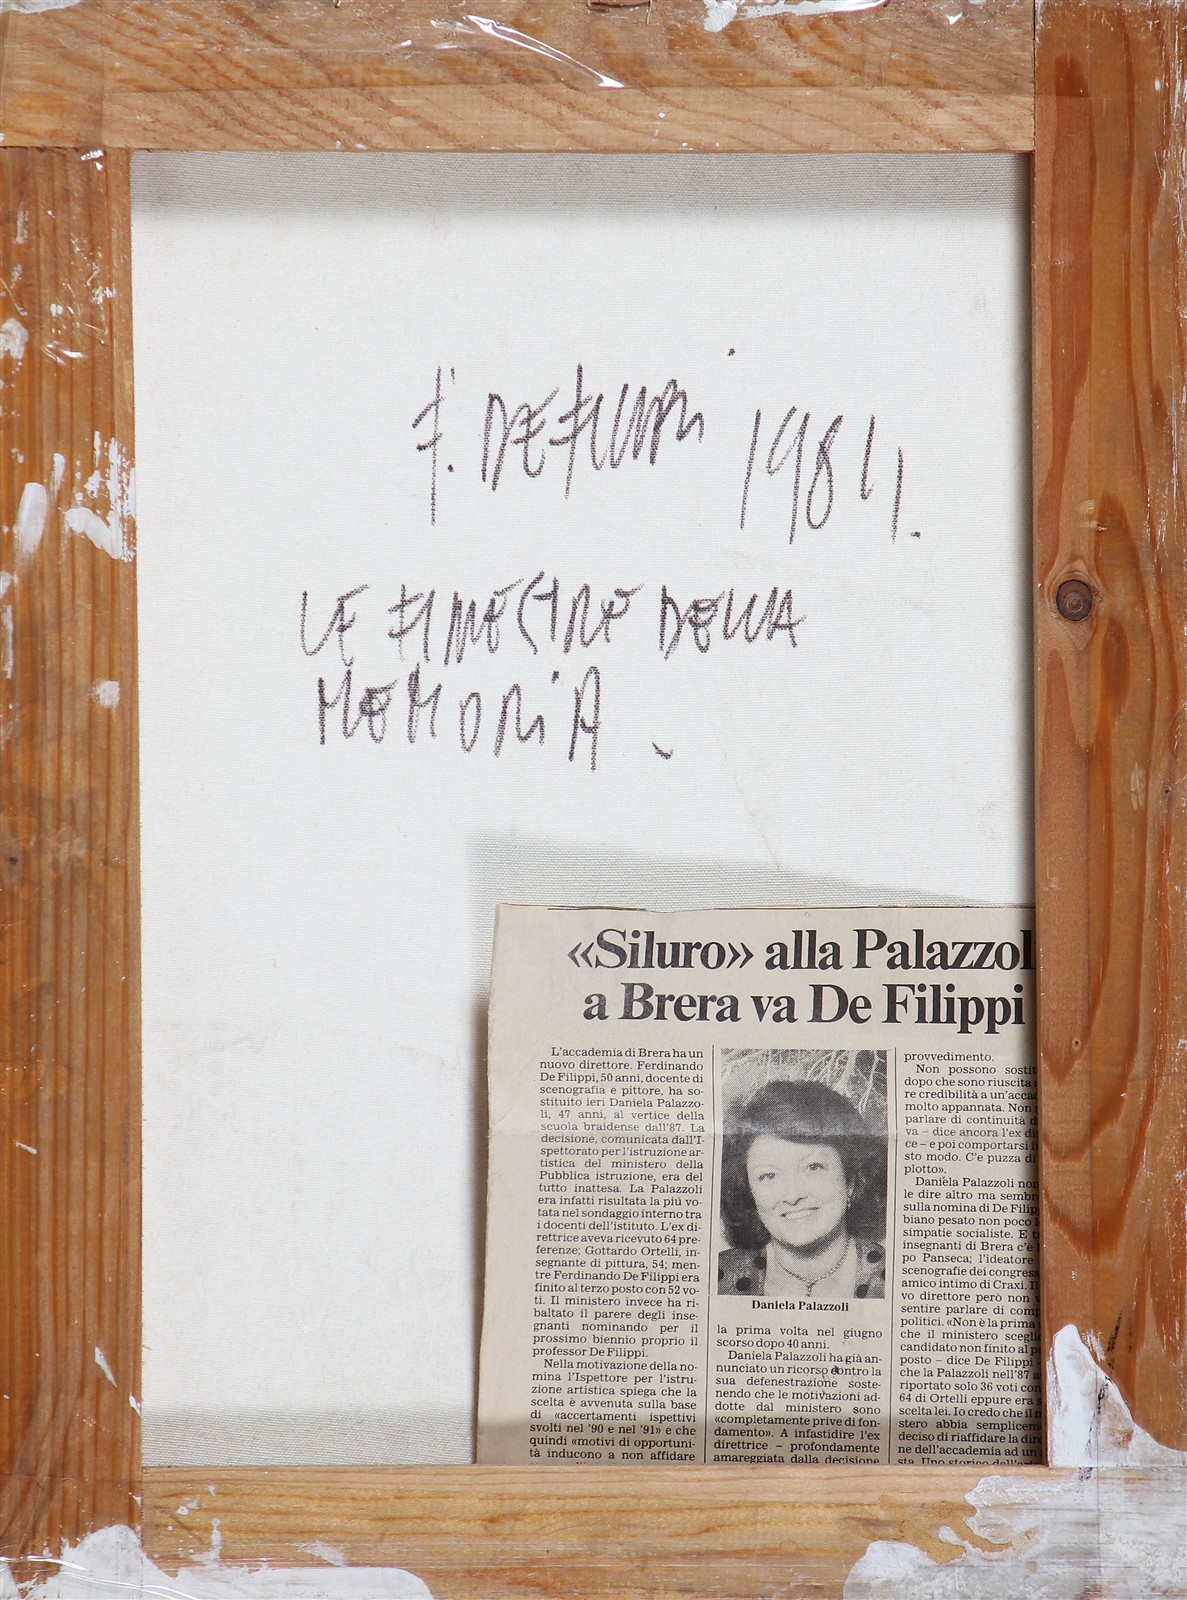 F. DE FILIPPI 1984.
LE FINESTRE DELLA
MEMORIA.
«Siluro» alla Palazzoli
a Brera va De Filippi
L'accademia di Brera ha un
nuovo direttore. Ferdinando
De Filippi, 50 anni, docente di
scenografia e pittore, ha so-
stituito ieri Daniela Palazzo-
li, 47 anni, al vertice della
scuola braidense dall'87. La
decisione, comunicata dall'I-
spettorato per l'istruzione ar-
tistica del ministero della
Pubblica istruzione, era del
tutto inattesa. La Palazzoli
era infatti risultata la più vo-
tata nel sondaggio interno tra
i docenti dell'istituto. L'ex di-
rettrice aveva ricevuto 64 pre-
ferenze; Gottardo Ortelli, in-
segnante di pittura, 54; men-
tre Ferdinando De Filippi era
finito al terzo posto con 52 vo-
ti. Il ministero invece ha ri-
baltato il parere degli inse-
gnanti nominando per il
prossimo biennio proprio il
professor De Filippi.
Nella motivazione della no-
mina l'Ispettore per l'istru-
zione artistica spiega che la
scelta è avvenuta sulla base
di «accertamenti ispettivi
svolti nel '90 e nel '91» e che
quindi «motivi di opportuni-
tà inducono a non affidare
Daniela Palazzoli
la prima volta nel giugno
scorso dopo 40 anni.
Daniela Palazzoli ha già an-
nunciato un ricorso contro la
sua defenestrazione soste-
nendo che le motivazioni ad-
dotte dal ministero sono
«completamente prive di fon-
damento». A infastidire l'ex
direttrice – profondamente
amareggiata dalla decisione
provvedimento.
Non possono sostit
dopo che sono riuscita a
re credibilità a un'acca
molto appannata. Non
parlare di continuità d
va – dice ancora l'ex di
ce – e poi comportarsi i
sto modo. C'e puzza di
plotto».
Daniela Palazzoli non
le dire altro ma semb
sulla nomina di De Filip
biano pesato non poco
simpatie socialiste. E
insegnanti di Brera c'è
po Panseca; l'ideatore
scenografie dei congress
amico intimo di Craxi. Il
vo direttore però non v
sentire parlare di com
politici. «Non è la prima
che il ministero scegli
candidato non finito al p
posto – dice De Filippi –
che la Palazzoli nell'87 a
riportato solo 36 voti con
64 di Ortelli eppure era s
scelta lei. Io credo che il
stero abbia semplicem
deciso di riaffidare la dire
ne dell'accademia ad un
sta. Uno storico